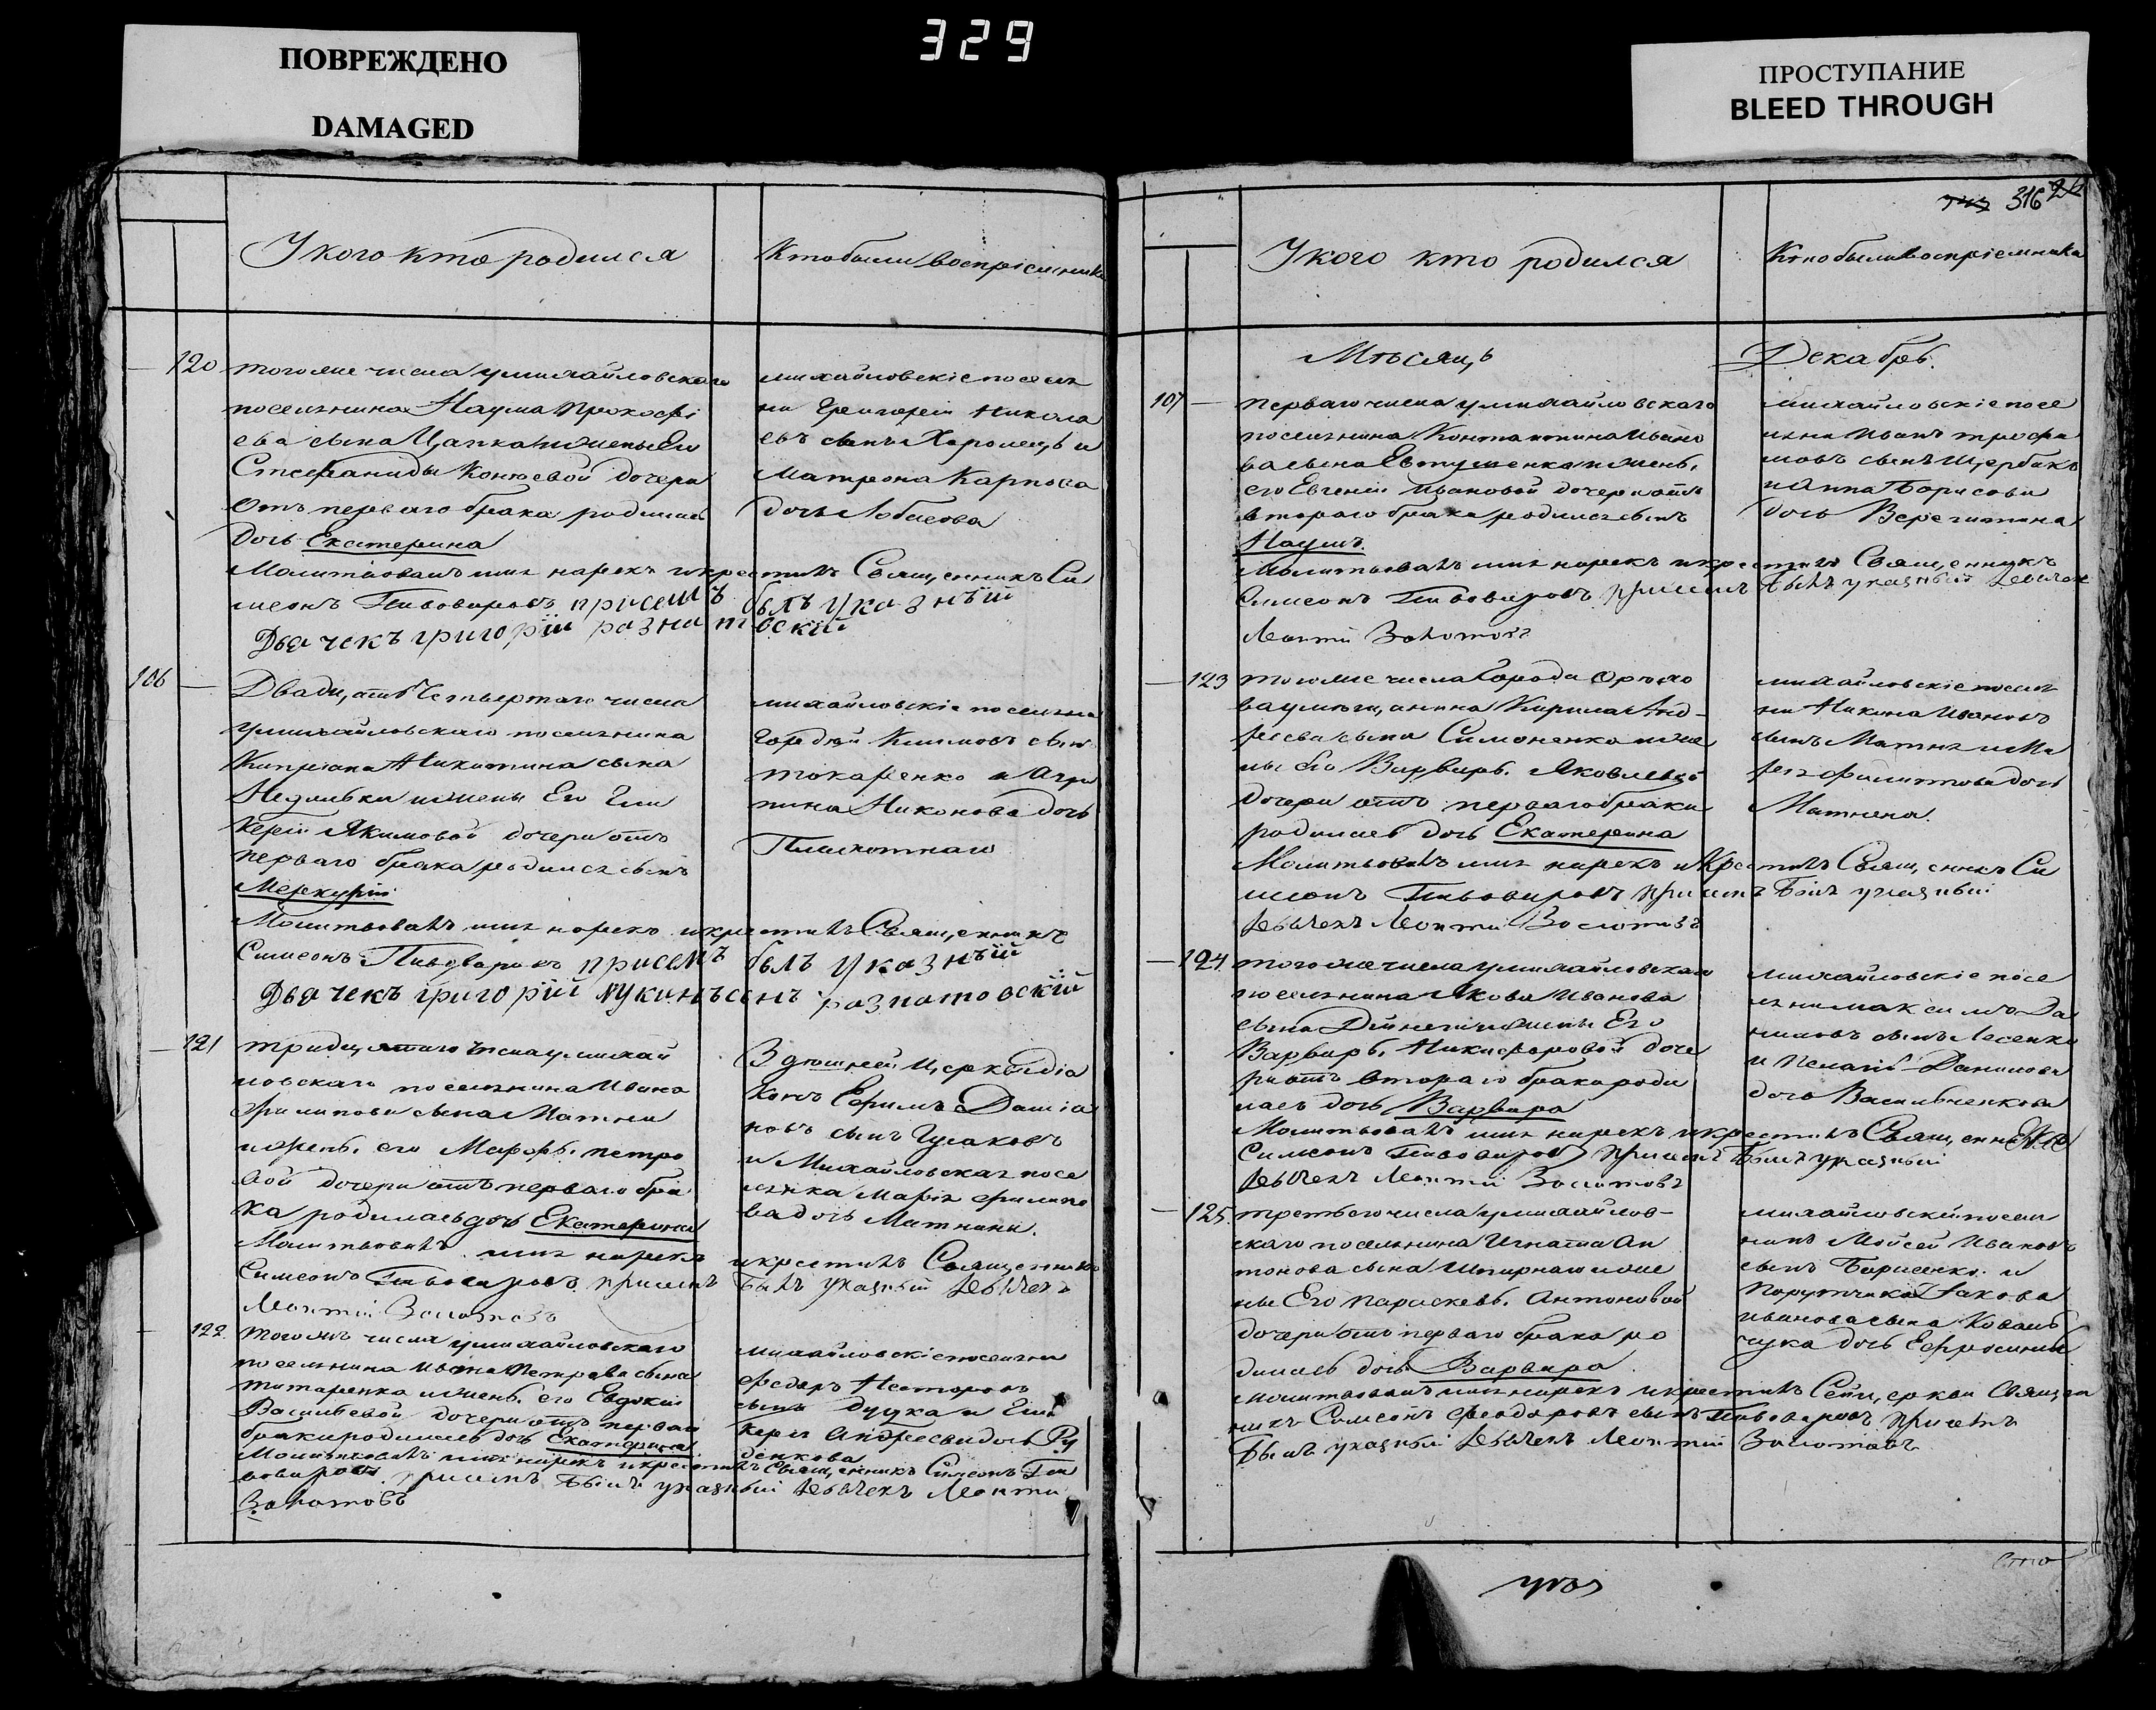 329
ПОВРЕЖДЕНО
DAMAGED
ПРОСТУПАНИЕ
BLEED THROUGH
У кого кто родился
Кто были воспріемники
120
тогоже числа умихайловскаго
поселянина Наума Прокофі
ева сына Цапка ижены Его
Стефаниды дочери
Отъ перваго брака родилась
Дочь Екатерина
Молитвовалъ имя нарекъ икрестилъ Священникъ Си
меонъ Пивоваровъ присемъ былъ указный
Дьячекъ григорїй
михайловскіе поселя
не Григорій Никола
евъ сынъ Хоролецъ и
Матрона Карпова
дочь
106
Двадцать Четвертаго числа
умихайловскаго поселянина
Кипріана Никитина сына
ижены Его Гли
керіи Якимовой дочери отъ
перваго брака родился сынъ
Меркурій
Молитвовалъ имя нарекъ икрестилъ Священникъ
Симеонъ Пивоваровъ присемъ былъ указный
Дьячекъ григорїй лукинъ сынъ
михайловскіе поселяне
Гордѣй Климовъ сынъ
токаренко и Агри
пина Никонова дочь
121
тридцатаго числа умихай
ловскаго поселянина Ивана
Филипова сына Матни
ижены его Марфы петро
вой дочери отъ перваго бра
ка родилась дочь Екатерина
Молитвовалъ имя нарекъ икрестилъ Священникъ
Симеонъ Пивоваровъ присемъ былъ указный дьячекъ
Леонтій Золотовъ
Здешней Церкви діа
конъ Ефимъ Даміа
новъ сынъ Гусаковъ
и Михайловская посе
лянка Марія филипо
ва дочь Матнина.
122
тогожъ числа умихайловскаго
поселянина Ивана Петрова сына
титаренка ижены его Евдокіи
Васильевой дочери отъ перваго
брака родилась дочь Екатерина
Молитвовалъ имя нарекъ икрестилъ Священникъ Симеонъ Пи
воваровъ присемъ былъ указный дьячекъ Леонтій
Золотовъ
михайловскіе поселяне
федоръ Несторовъ
сынъ дудка и Гли
керія Андреева дочь Ру
денкова
316
У кого кто родился
Кто были воспріемники
Мѣсяцъ Декабрь.
107
перваго числа умихайловскаго
поселянина Константина Ивано
ва сына Евтушенка ижены
его Евгеніи Ивановой дочери отъ
втораго брака родился сынъ
Наумъ.
Молитвовалъ имя нарекъ икрестилъ Священникъ
Симеонъ Пивоваровъ присемъ былъ указный дьячекъ
Леонтій Золотовъ
михайловскіе посе
ляне Иванъ трофи
мовъ сынъ Щербакъ
и Анна Борисова
дочь
123
тогоже числа Города Орѣхо
ва умещанина Кирила Анд-
реева сына Симоненка иже
ны Его Варвары Яковлевой
дочери отъ перваго брака
родилась дочь Екатерина
Молитвовалъ имя нарекъ икрестилъ Священникъ Си
меонъ Пивоваровъ присемъ былъ указный
дьячекъ Леонтій Золотовъ
михайловскіе поселя
не Никита Ивановъ
сынъ Матня и Ма
рія филипова дочь
Матнена.
124
тогоже числа умихайловскаго
поселянина Якова Иванова
сына Дейнеги ижены Его
Варвары Никифоровой доче
ри отъ втораго брака роди
лась дочь Варвара
Молитвовалъ имя нарекъ икрестилъ Священникъ
Симеонъ Пивоваровъ присемъ былъ указный
дьячекъ Леонтій Золотовъ
михайловскіе посе
ляне максимъ Да
ниловъ сынъ Лесенко
и Пелагія Данилова
дочь Васильченкова
125.
третьего числа умихайлов-
скаго поселянина Игната Ан
тонова сына иже
ны Его параскевы Антоновой
дочери отъ перваго брака ро
дилась дочь Варвара
Молитвовалъ имя нарекъ икрестилъ Сей церкви Священ
никъ Симеонъ феодоровъ сынъ Пивоваровъ присемъ
былъ указный дьячекъ Леонтій Золотовъ
михайловскій поселя
нинъ Мойсей Ивановъ
сынъ Борисенко и
Порутчика Іакова
иванова сына Коваль
чука дочь Ефросинія